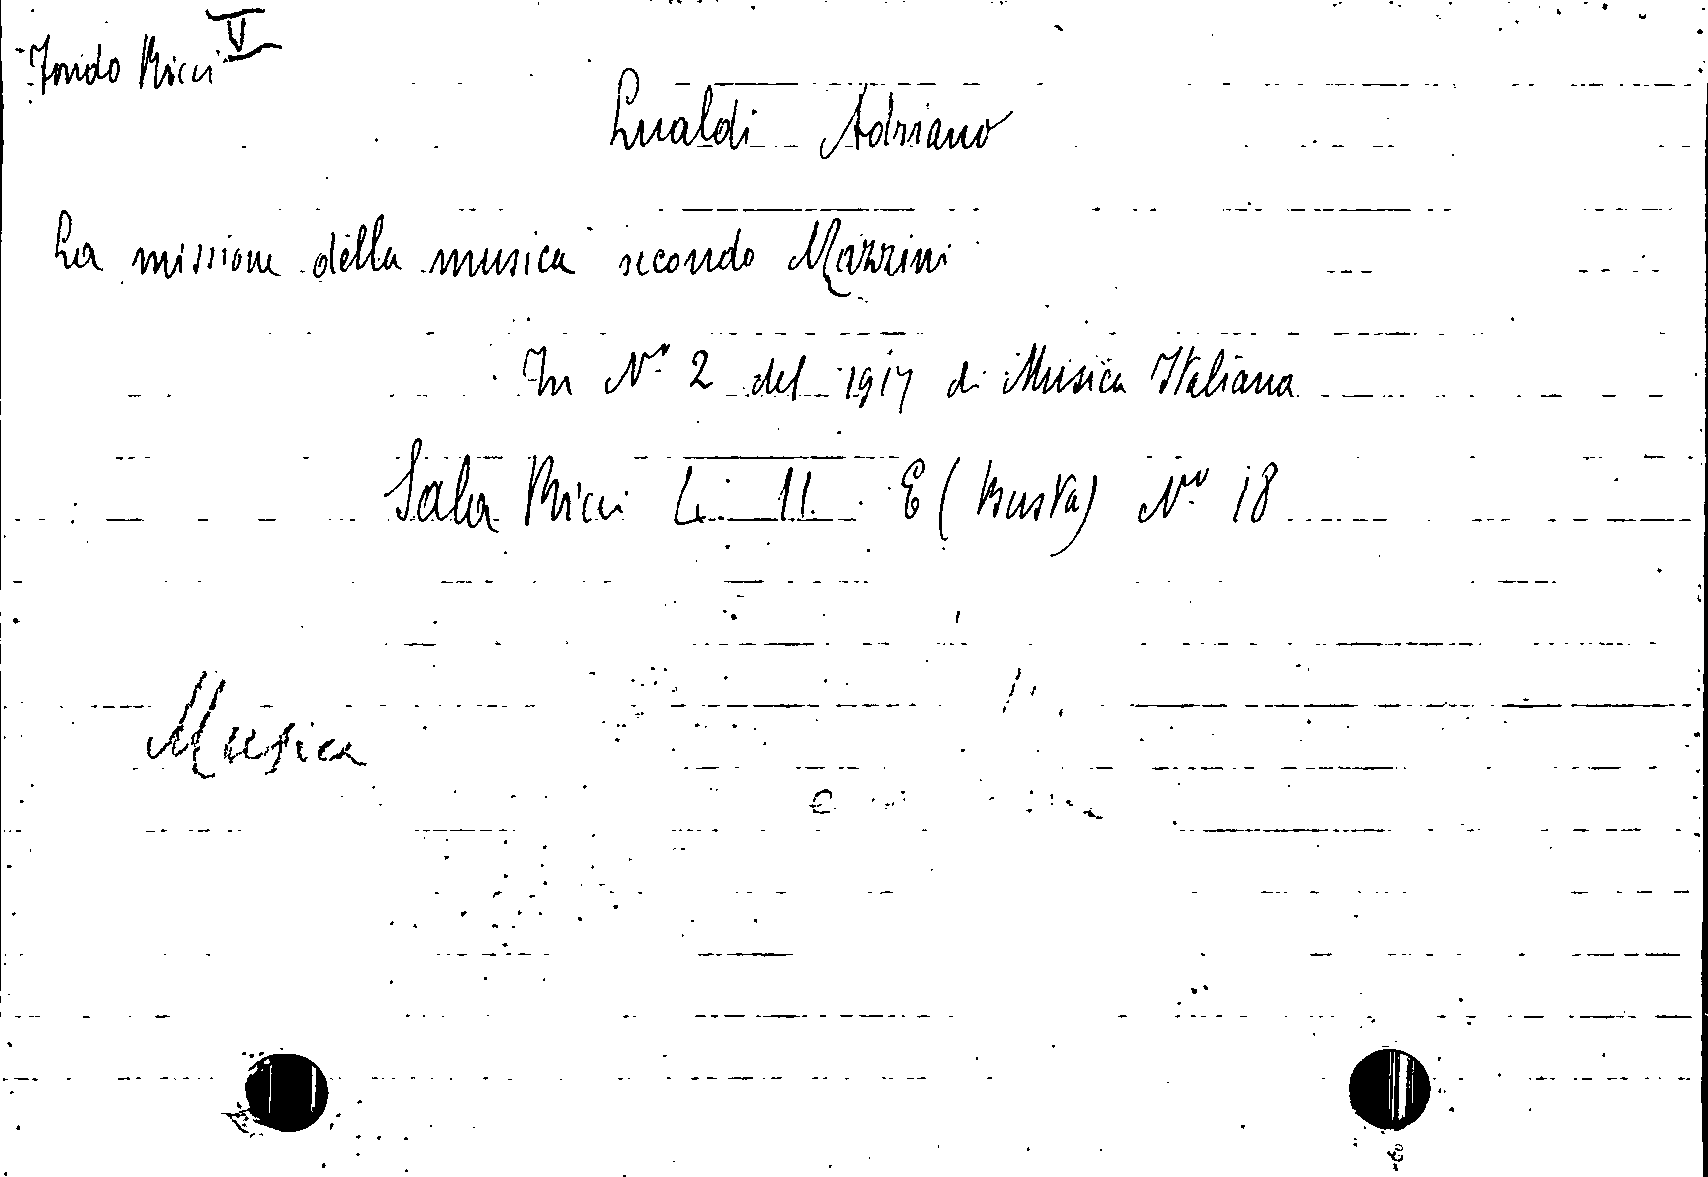 Fondo Ricci V
Lualdi Adriano
La missione della musica secondo Mazzini
In Nº 2 del 1917 di Musica Italiana
Sala Ricci L. 11. E (Busta) Nº 18
Musica